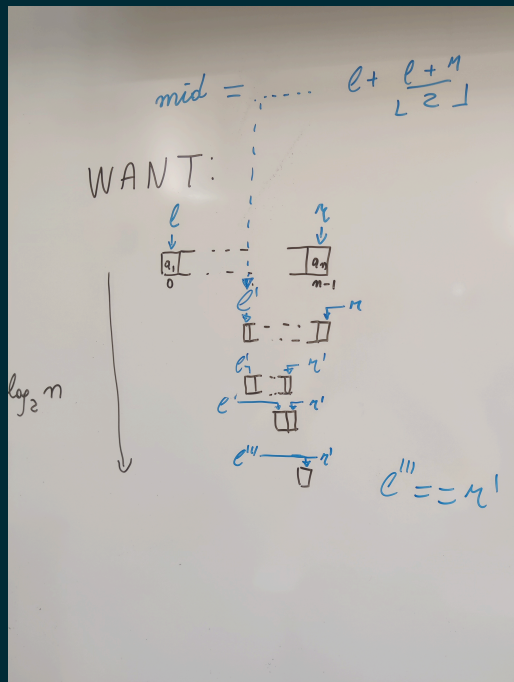 mid = ...... l + ⌊(l + r)/2⌋
WANT:
l r
a₁ ... aₙ
0 n-1
l' r
l' r'
l' r'
log₂ n
l''' r'
l''' == r'